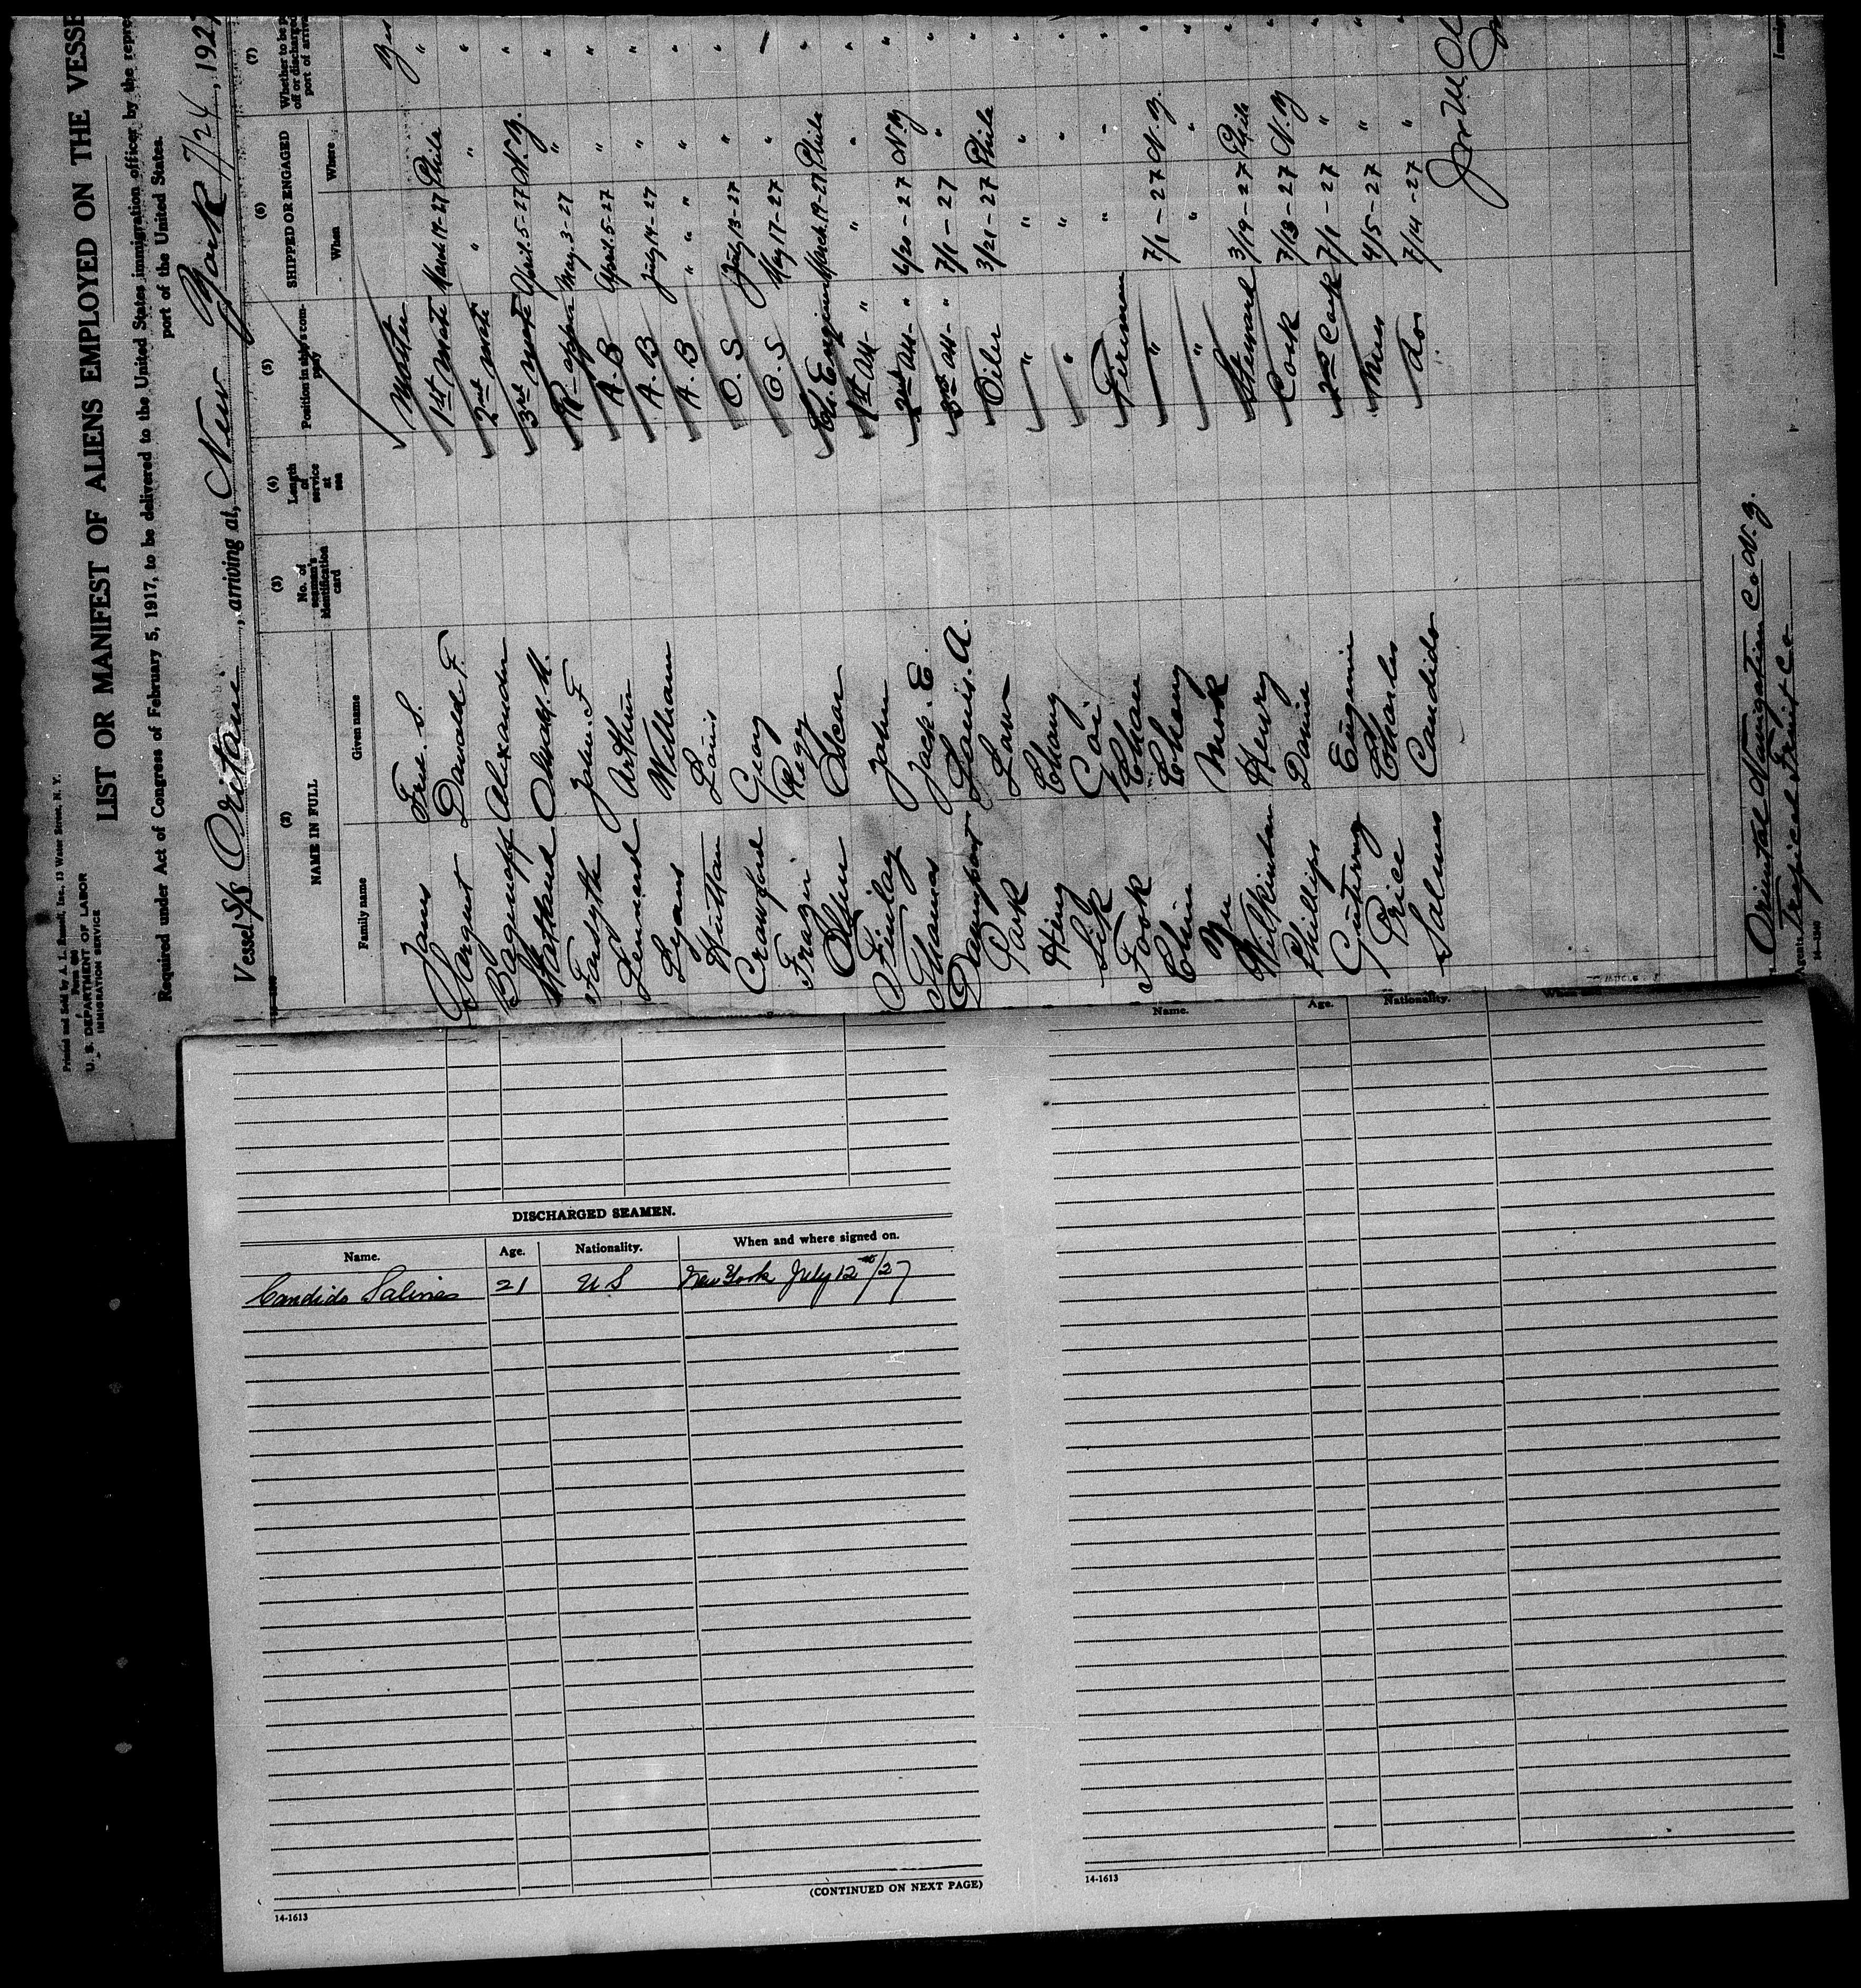 Printed and Sold by A. L. Russell, Inc., 13 Water Street, N. Y.
U. S. DEPARTMENT OF LABOR
IMMIGRATION SERVICE
LIST OR MANIFEST OF ALIENS EMPLOYED ON THE VESSE
Required under Act of Congress of February 5, 1917, to be delivered to the United States immigration officer by the repre
port of the United States.
Vessel S/S Oritani, arriving at, New York 7/24, 192
(2) (3) (4) (5) (6) (7)
NAME IN FULL No. of seaman's identification card Length of service at sea Position in ship's company SHIPPED OR ENGAGED Whether to be p
off or discharged
port of arriva
Family name Given name When Where
S. Master Yes
Sargent Donald F. 1st Mate March 19-27 Phila "
Bagenoff Alexander 2nd Mate " " "
3rd Mate April 5-27 N.Y. "
Forsyth John F May 3-27 " "
Arthur A.B April 5-27 " "
Lyons William A.B July 14-27 " "
Hutton Louis A.B " " "
Crawford O.S July 13-27 " "
O.S May 17-27 " "
Oscar Ch. Engineer March 19-27 Phila "
Finlay John 1st Asst " " " "
Thomas Jack. E. 2nd Asst " 4/20-27 N.Y "
Davenport Louis. A. 3rd Asst " 7/1-27 " "
Park Law Oiler 3/21-27 Phila "
Hing Chang " " " "
Sik Goi " " " "
Fook Chan Fireman " " "
Chin Cheng " 7/1-27 N.Y. "
Yu Mok " " " "
Wilkinson Henry Steward 3/19-27 Phila "
Phillips Daniel Cook 7/13-27 N.Y "
Guthrey Eugene 2nd Cook 7/1-27 " "
Price Charles Mess 4/5-27 " "
Salines Candido do. 7/14-27 " "
Oriental Navigation Co N.Y.
Agents Tropical Fruit Co
14-1240
Name. Age. Nationality.
DISCHARGED SEAMEN.
Name. Age. Nationality. When and where signed on.
Candido Salines 21 U S New York July 12th/27
(CONTINUED ON NEXT PAGE)
14-1613
14-1613